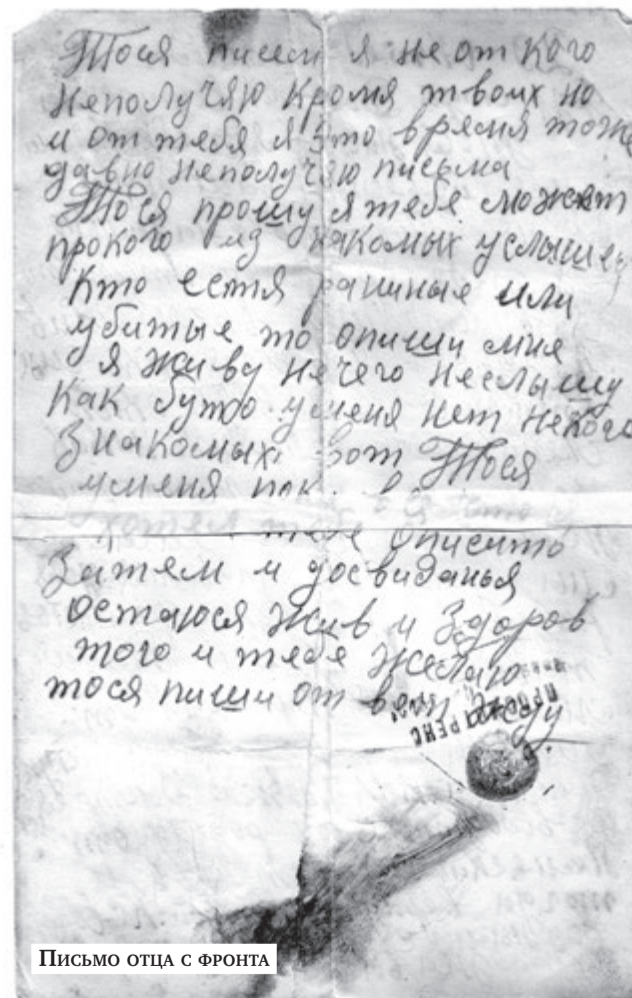 Тося писем я не от кого
неполучяю кромя твоих но
и от тебя я это время тоже
давно неполучяю письма
Тося прошу я тебе может
прокого из знакомых услышеш
кто естя раниные или
убитые то опиши мне
я живу нечего неслышу
как бутто уменя нет некого
знакомых вот Тося
уменя
хотел тебе описить
Затем и досвиданья
остаюся жив и здоров
того и тебе желаю
тося пиши ответ жду
ПИСЬМО ОТЦА С ФРОНТА